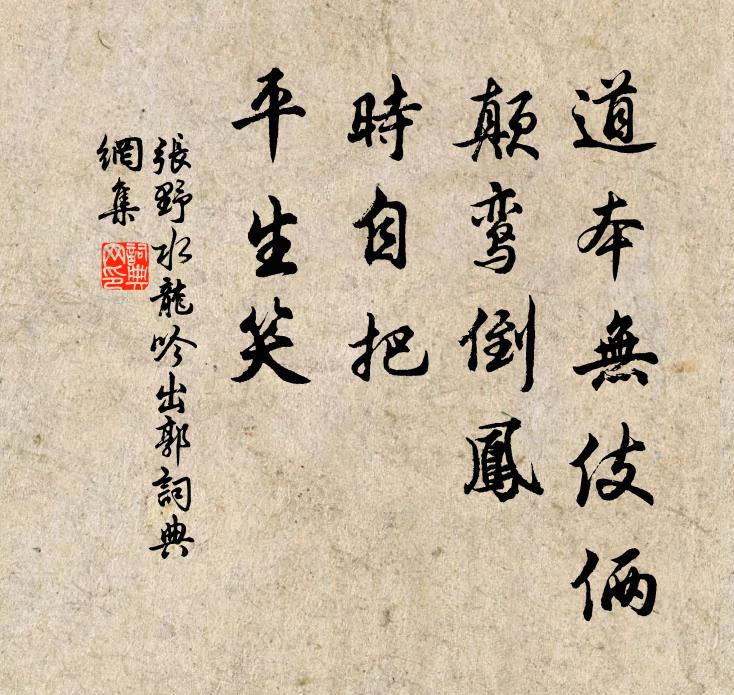 道本無伎倆
顛鸾倒鳳
時自把
平生笑
張野水龍吟出郭詞典
網集
詞典
网印